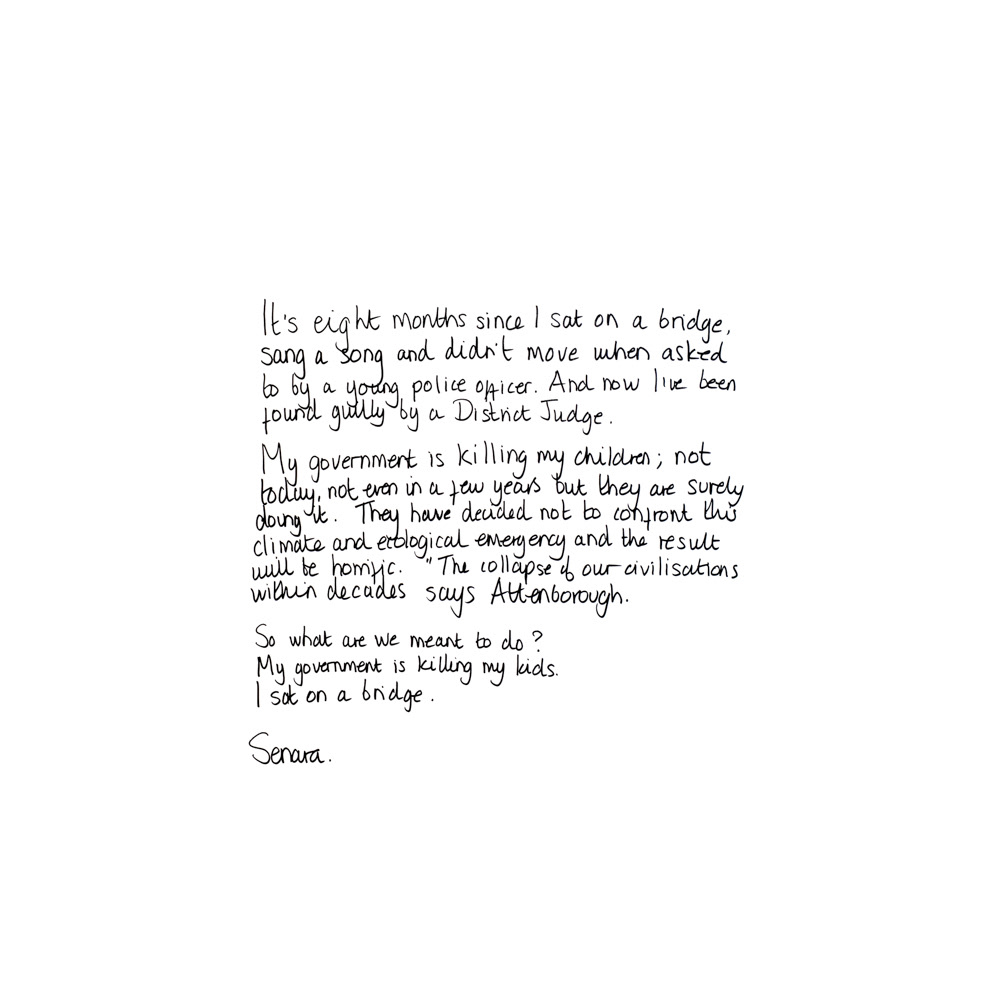 It's eight months since I sat on a bridge,
sang a song and didn't move when asked
to by a young police officer. And now I've been
found guilty by a District Judge.
My government is killing my children; not
today, not even in a few years but they are surely
doing it. They have decided not to confront this
climate and ecological emergency and the result
will be horrific. "The collapse of our civilisations
within decades says Attenborough.
So what are we meant to do?
My government is killing my kids.
I sat on a bridge.
Senara.